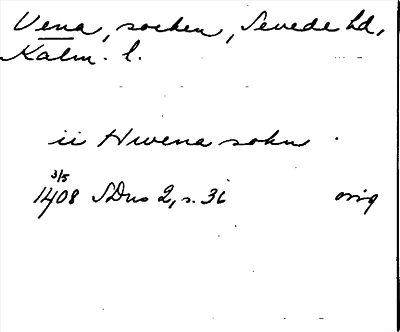 Vena, socken, Sevede hd,
Kalm. l.
ii Hwena sokn
3/5
1408 SDns 2, s. 36 orig